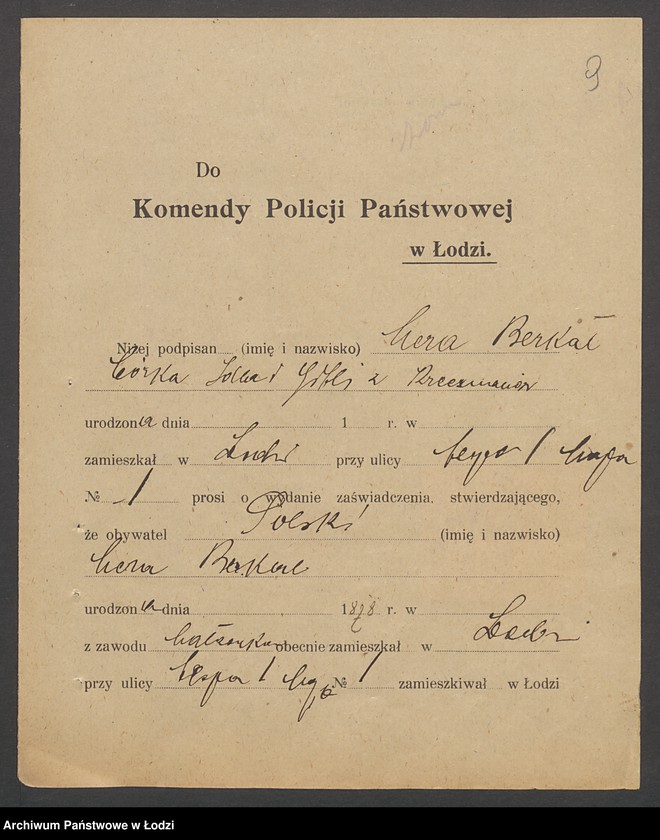 9
Do
Komendy Policji Państwowej
w Łodzi.
Niżej podpisan (imię i nazwisko) Berkal
Córka i z
urodzona dnia 1 r. w
zamieszkał w Łodzi przy ulicy 1 Maja
№ 1 prosi o wydanie zaświadczenia, stwierdzającego,
że obywatel Polski (imię i nazwisko)
Berkal
urodzona dnia 1878 r. w Łodzi
z zawodu obecnie zamieszkał w
przy ulicy 1 Maja № 1 zamieszkiwał w Łodzi
Archiwum Państwowe w Łodzi